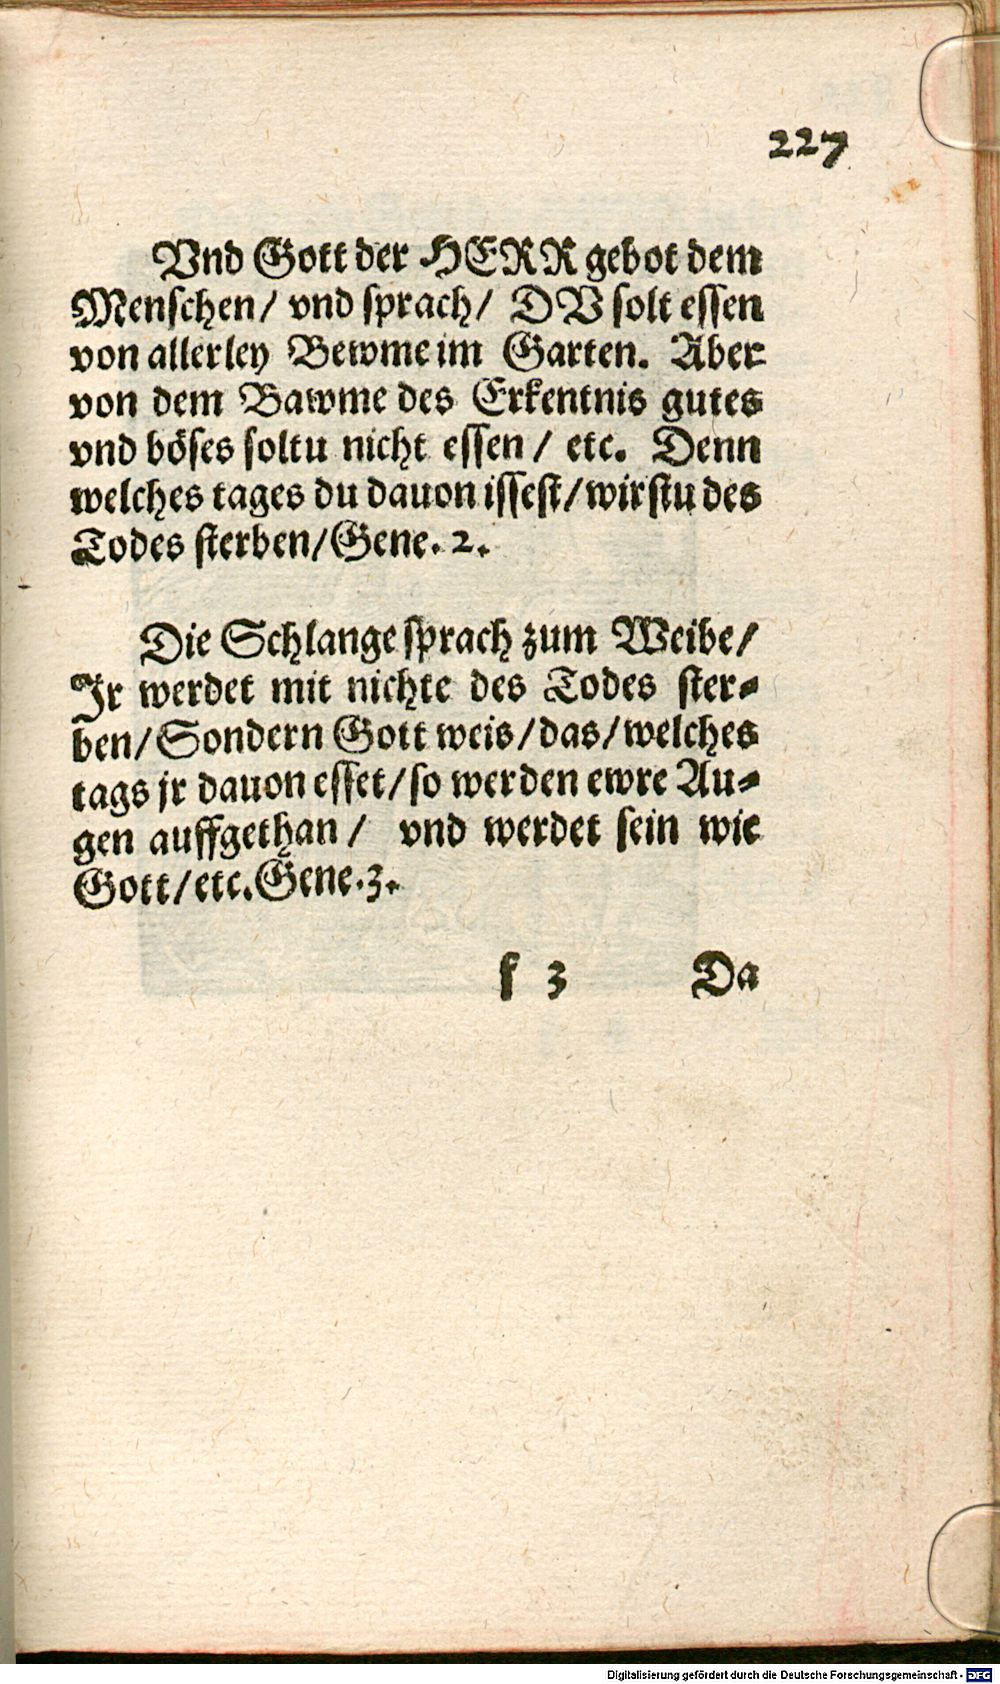 227
Vnd Gott der HERR gebot dem
Menschen/ vnd sprach/ DV solt essen
von allerley Bewme im Garten. Aber
von dem Bawme des Erkentnis gutes
vnd böses soltu nicht essen/ etc. Denn
welches tages du dauon issest/ wirstu des
Todes sterben/ Gene. 2.
Die Schlange sprach zum Weibe/
Jr werdet mit nichte des Todes ster-
ben/ Sondern Gott weis/ das/ welches
tags jr dauon esset/ so werden ewre Au-
gen auffgethan/ vnd werdet sein wie
Gott/ etc. Gene. 3.
f 3 Da
Digitalisierung gefördert durch die Deutsche Forschungsgemeinschaft - DFG